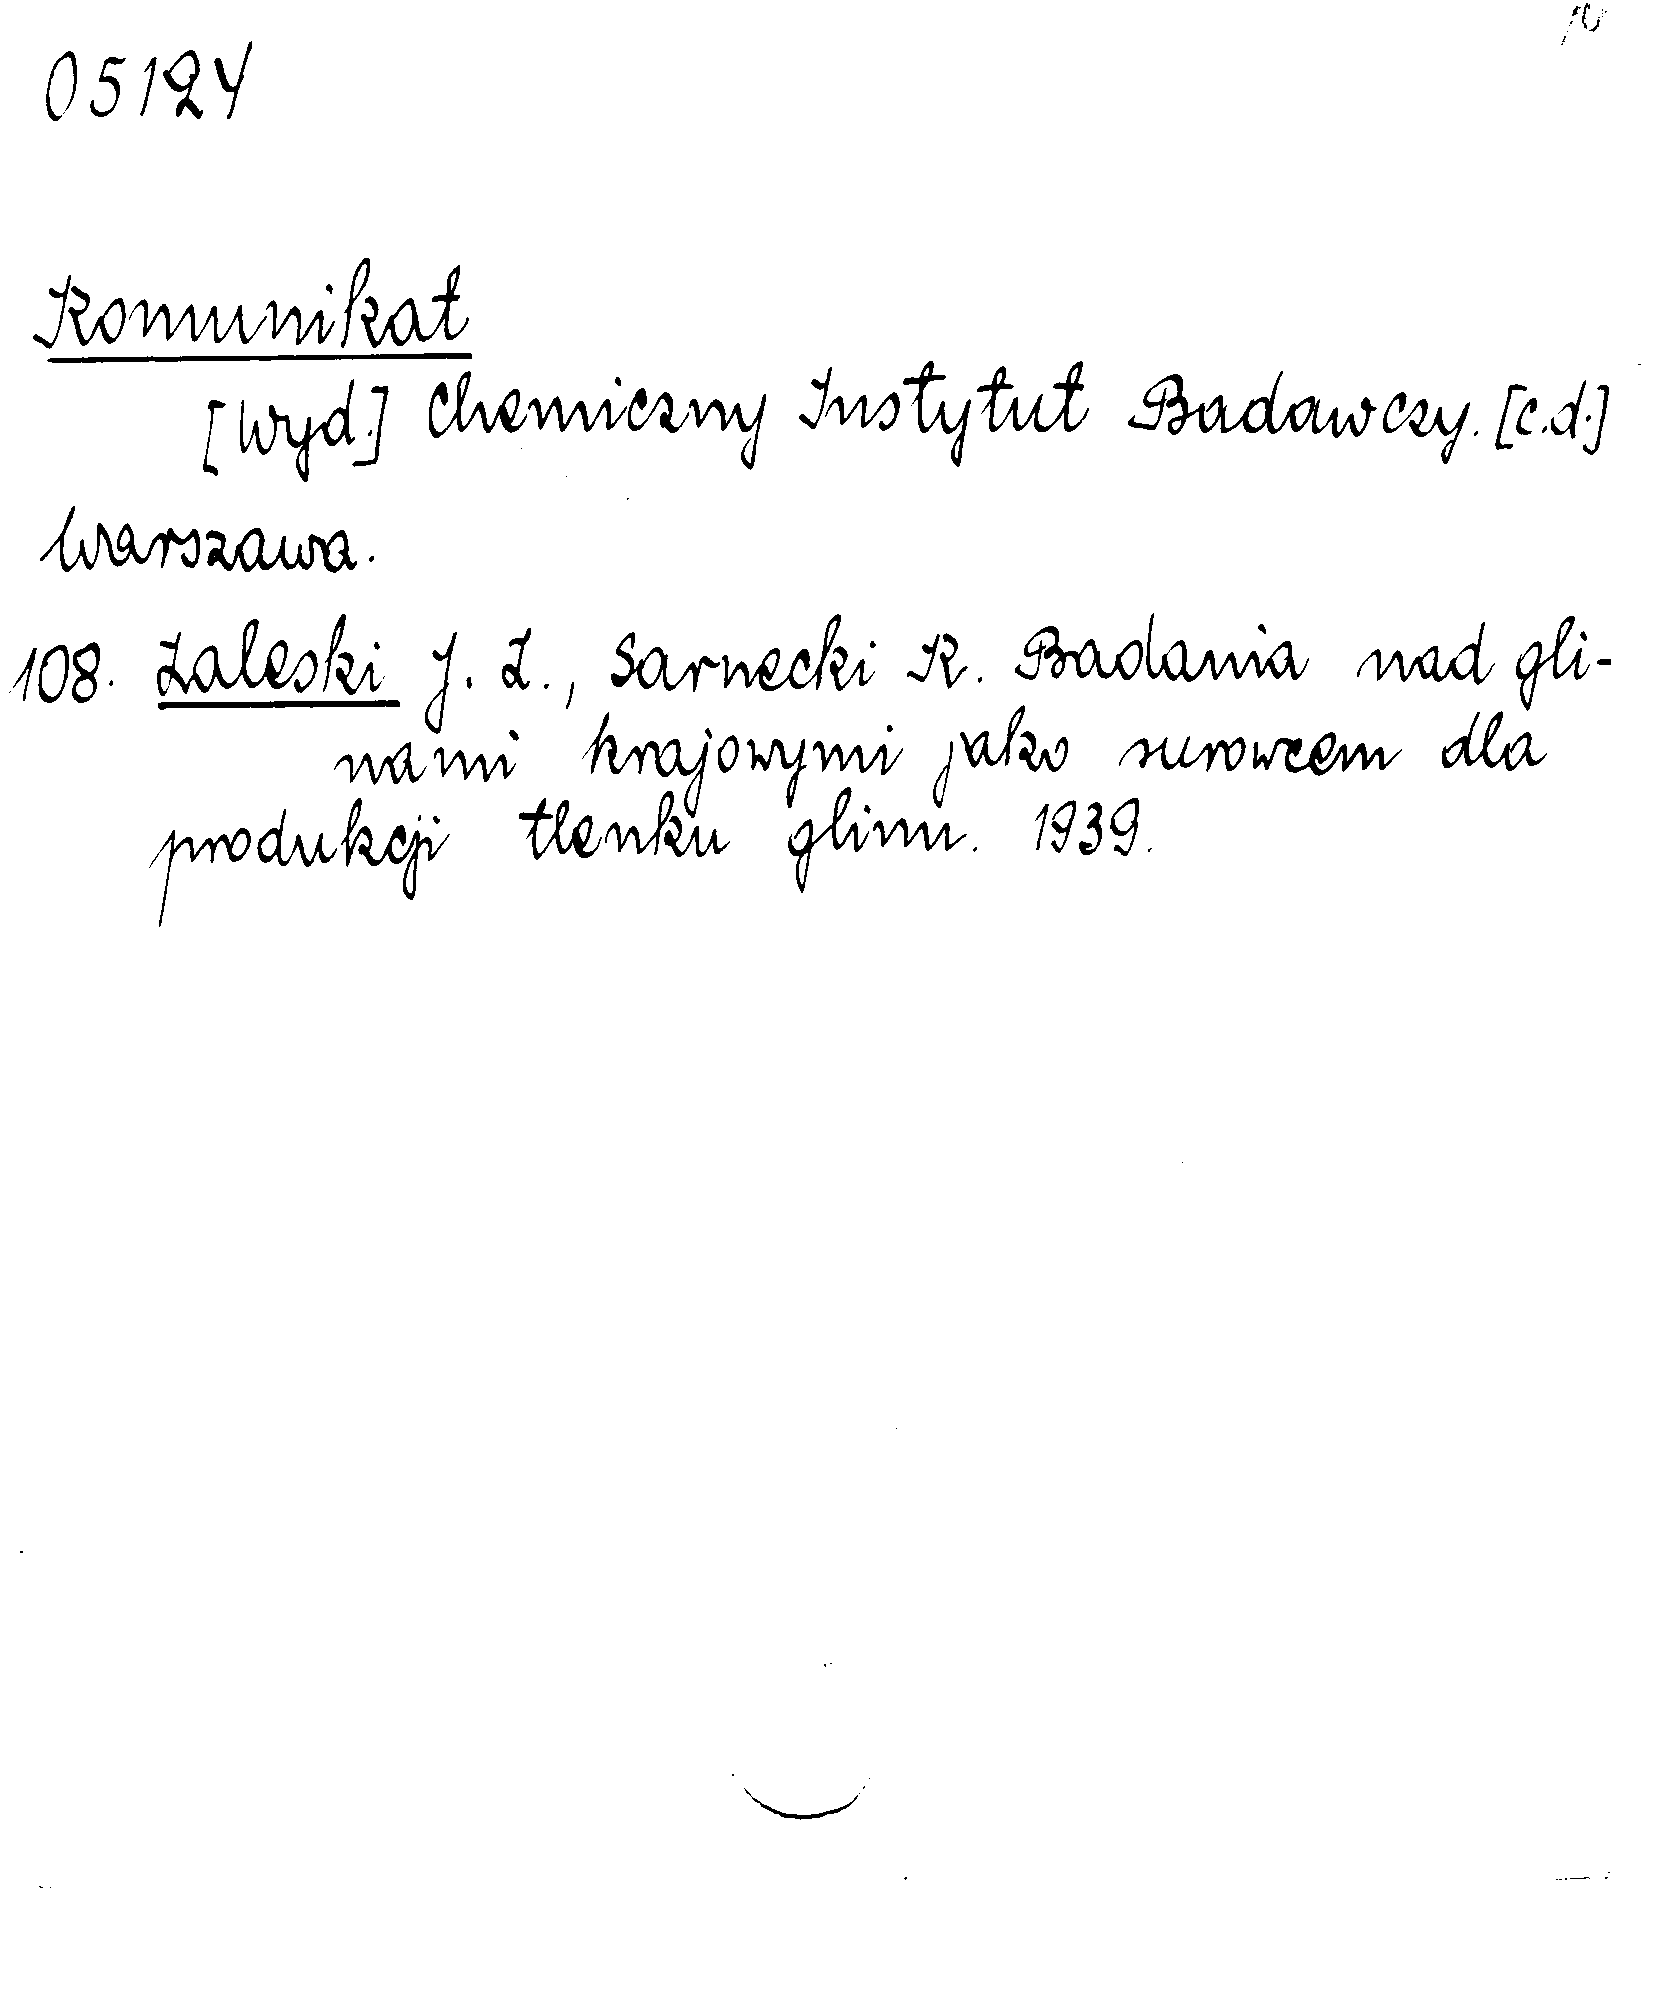 05124
Komunikat
[Wyd.] Chemiczny Instytut Badawczy. [c.d.]
Warszawa.
108. Zaleski J. Z., Sarnecki K. Badania nad gli-
nami krajowymi jako surowcem dla
produkcji tlenku glinu. 1939.